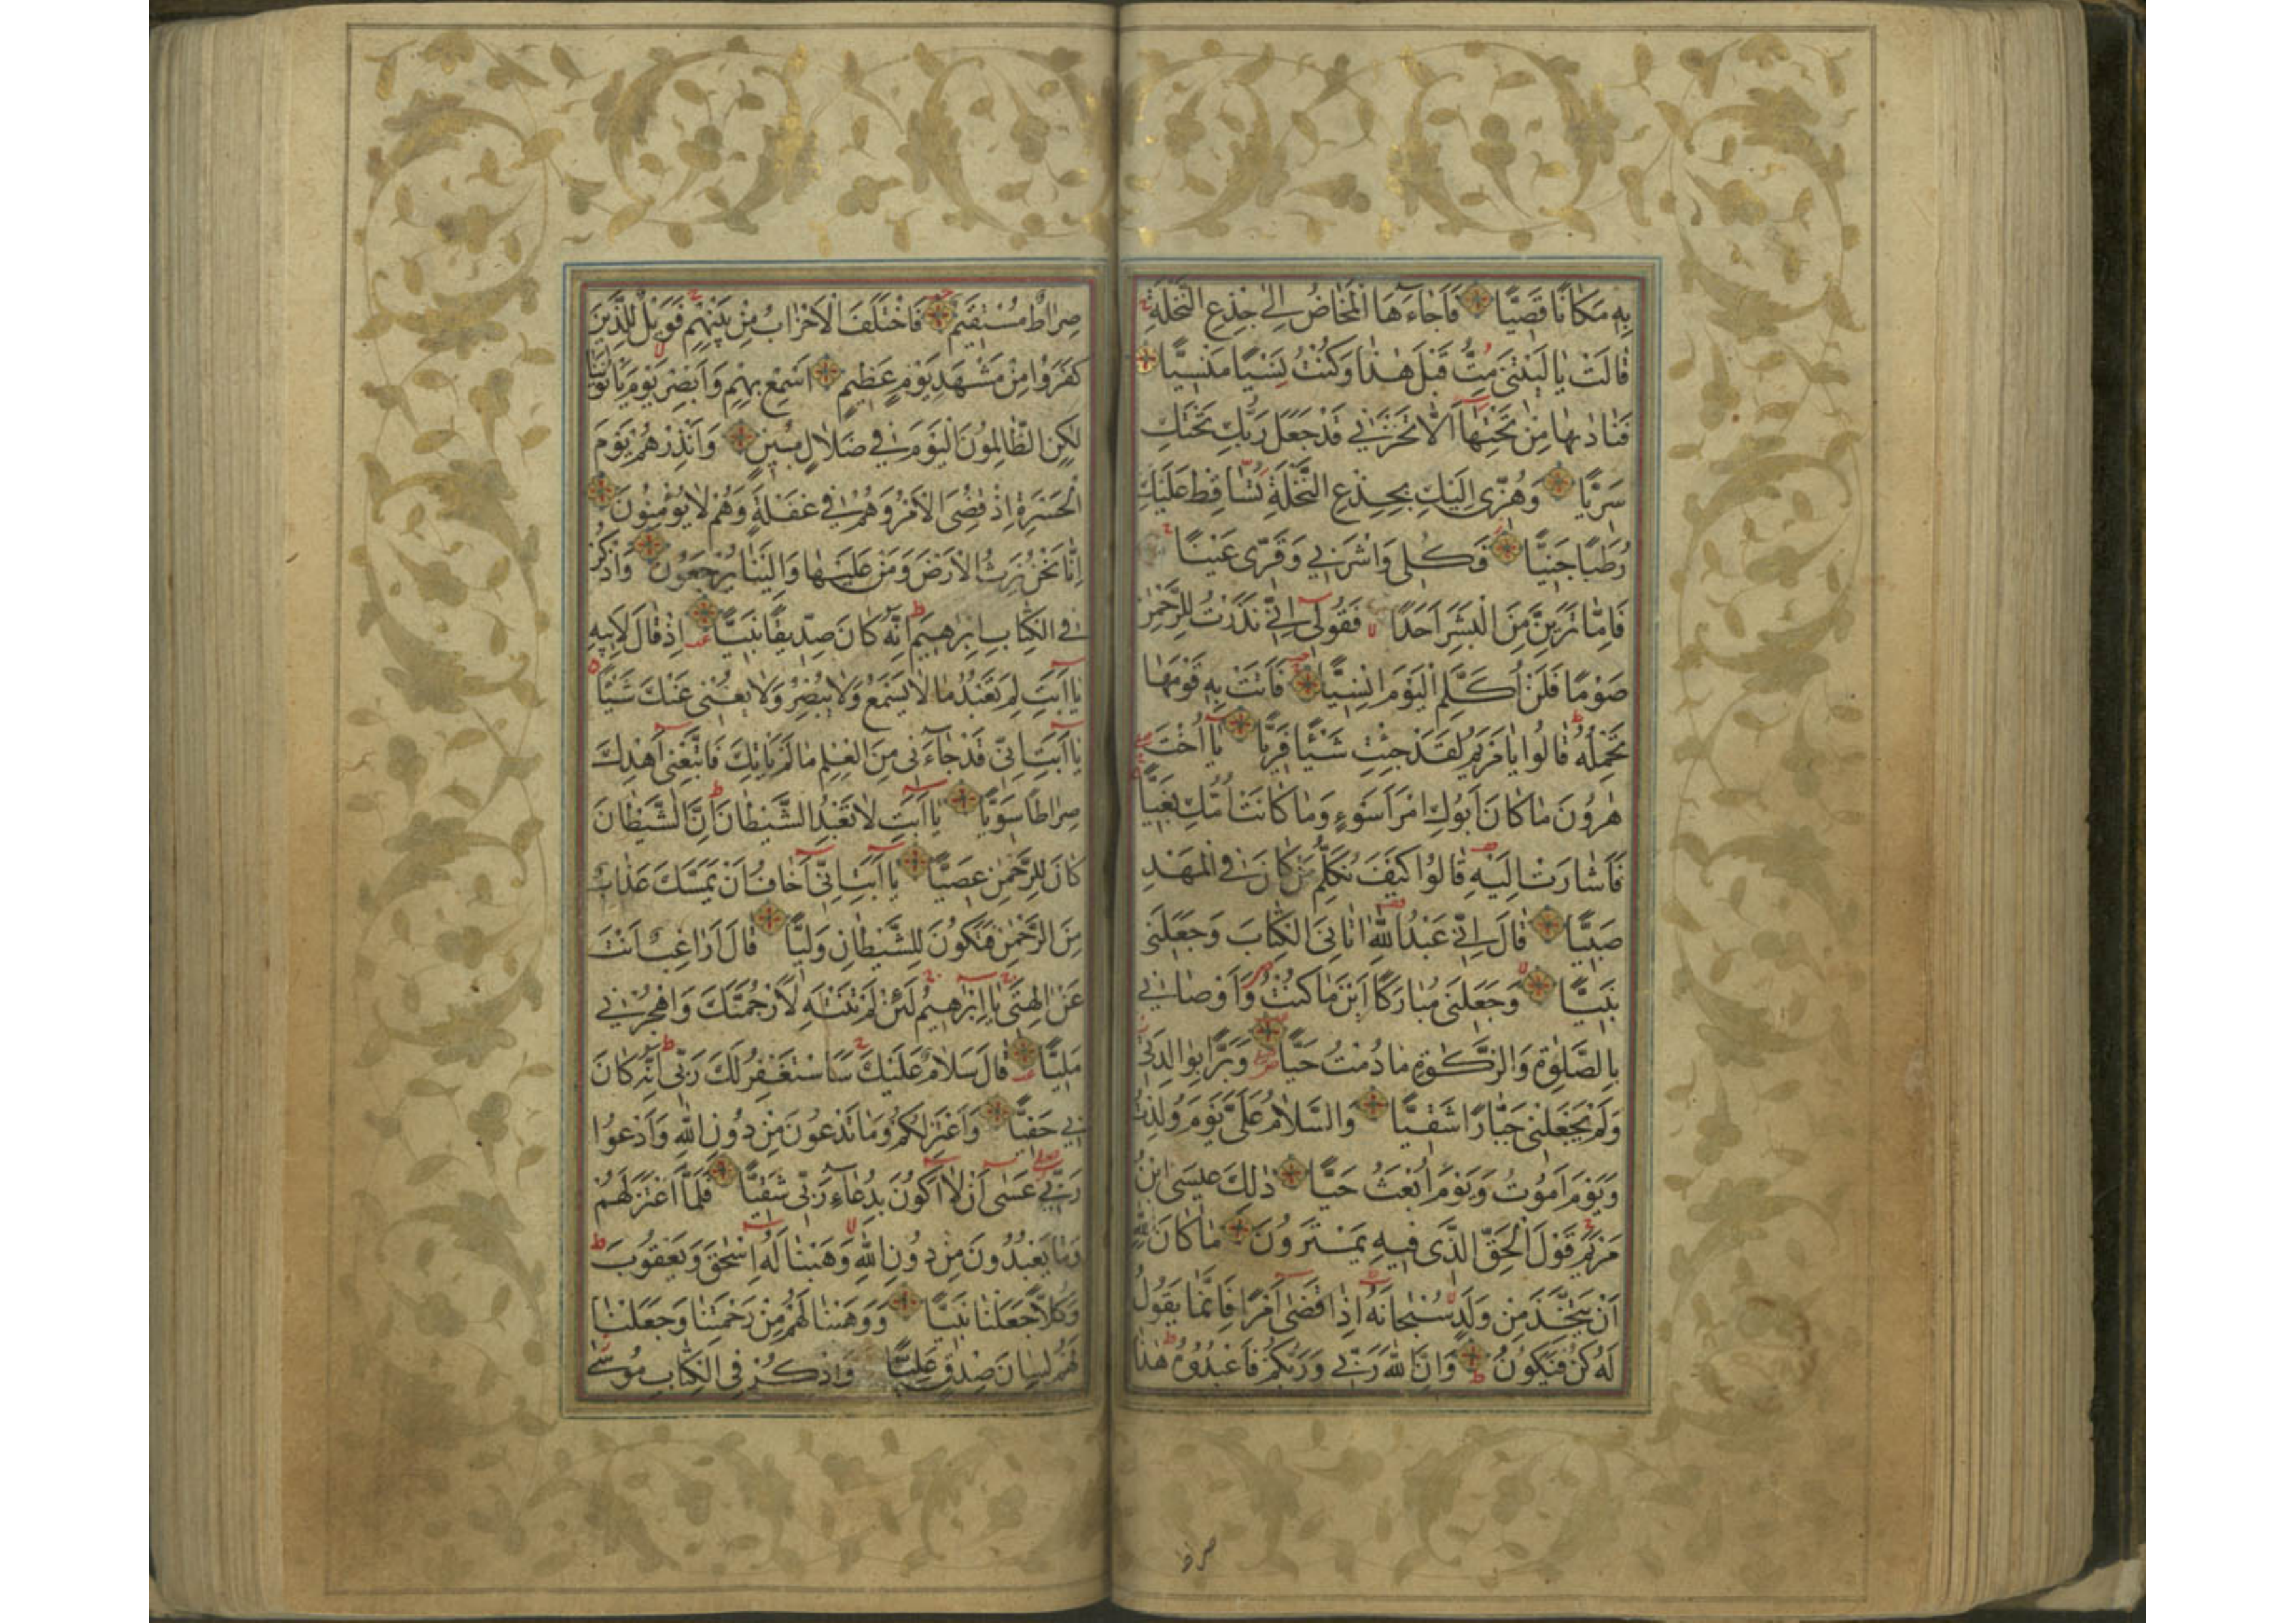 بِهِ مَكَانًا قَصِيًّا فَأَجَاءَهَا الْمَخَاضُ إِلَىٰ جِذْعِ النَّخْلَةِ
قَالَتْ يَا لَيْتَنِي مِتُّ قَبْلَ هَٰذَا وَكُنْتُ نَسْيًا مَنْسِيًّا
فَنَادَىٰهَا مِنْ تَحْتِهَا أَلَّا تَحْزَنِي قَدْ جَعَلَ رَبُّكِ تَحْتَكِ
سَرِيًّا وَهُزِّي إِلَيْكِ بِجِذْعِ النَّخْلَةِ تُسَاقِطْ عَلَيْكِ
رُطَبًا جَنِيًّا فَكُلِي وَاشْرَبِي وَقَرِّي عَيْنًا
فَإِمَّا تَرَيِنَّ مِنَ الْبَشَرِ أَحَدًا فَقُولِي إِنِّي نَذَرْتُ لِلرَّحْمٰنِ
صَوْمًا فَلَنْ أُكَلِّمَ الْيَوْمَ إِنْسِيًّا فَأَتَتْ بِهِ قَوْمَهَا
تَحْمِلُهُ قَالُوا يَا مَرْيَمُ لَقَدْ جِئْتِ شَيْئًا فَرِيًّا يَا أُخْتَ
هٰرُونَ مَا كَانَ أَبُوكِ امْرَأَ سَوْءٍ وَمَا كَانَتْ أُمُّكِ بَغِيًّا
فَأَشَارَتْ إِلَيْهِ قَالُوا كَيْفَ نُكَلِّمُ مَنْ كَانَ فِي الْمَهْدِ
صَبِيًّا قَالَ إِنِّي عَبْدُ اللهِ اٰتَانِيَ الْكِتَابَ وَجَعَلَنِي
نَبِيًّا وَجَعَلَنِي مُبَارَكًا أَيْنَ مَا كُنْتُ وَأَوْصَانِي
بِالصَّلٰوةِ وَالزَّكٰوةِ مَا دُمْتُ حَيًّا وَبَرًّا بِوَالِدَتِي
وَلَمْ يَجْعَلْنِي جَبَّارًا شَقِيًّا وَالسَّلَامُ عَلَيَّ يَوْمَ وُلِدْتُ
وَيَوْمَ أَمُوتُ وَيَوْمَ أُبْعَثُ حَيًّا ذٰلِكَ عِيسَى ابْنُ
مَرْيَمَ قَوْلَ الْحَقِّ الَّذِي فِيهِ يَمْتَرُونَ مَا كَانَ لِلّٰهِ
أَنْ يَتَّخِذَ مِنْ وَلَدٍ سُبْحَانَهُ إِذَا قَضَىٰ أَمْرًا فَإِنَّمَا يَقُولُ
لَهُ كُنْ فَيَكُونُ وَإِنَّ اللهَ رَبِّي وَرَبُّكُمْ فَاعْبُدُوهُ هٰذَا
صراط
صِرَاطٌ مُسْتَقِيمٌ فَاخْتَلَفَ الْأَحْزَابُ مِنْ بَيْنِهِمْ فَوَيْلٌ لِلَّذِينَ
كَفَرُوا مِنْ مَشْهَدِ يَوْمٍ عَظِيمٍ أَسْمِعْ بِهِمْ وَأَبْصِرْ يَوْمَ يَأْتُونَنَا
لٰكِنِ الظَّالِمُونَ الْيَوْمَ فِي ضَلَالٍ مُبِينٍ وَأَنْذِرْهُمْ يَوْمَ
الْحَسْرَةِ إِذْ قُضِيَ الْأَمْرُ وَهُمْ فِي غَفْلَةٍ وَهُمْ لَا يُؤْمِنُونَ
إِنَّا نَحْنُ نَرِثُ الْأَرْضَ وَمَنْ عَلَيْهَا وَإِلَيْنَا يُرْجَعُونَ وَاذْكُرْ
فِي الْكِتَابِ إِبْرٰهِيمَ إِنَّهُ كَانَ صِدِّيقًا نَبِيًّا إِذْ قَالَ لِأَبِيهِ
يَا أَبَتِ لِمَ تَعْبُدُ مَا لَا يَسْمَعُ وَلَا يُبْصِرُ وَلَا يُغْنِي عَنْكَ شَيْئًا
يَا أَبَتِ إِنِّي قَدْ جَاءَنِي مِنَ الْعِلْمِ مَا لَمْ يَأْتِكَ فَاتَّبِعْنِي أَهْدِكَ
صِرَاطًا سَوِيًّا يَا أَبَتِ لَا تَعْبُدِ الشَّيْطَانَ إِنَّ الشَّيْطَانَ
كَانَ لِلرَّحْمٰنِ عَصِيًّا يَا أَبَتِ إِنِّي أَخَافُ أَنْ يَمَسَّكَ عَذَابٌ
مِنَ الرَّحْمٰنِ فَتَكُونَ لِلشَّيْطَانِ وَلِيًّا قَالَ أَرَاغِبٌ أَنْتَ
عَنْ اٰلِهَتِي يَا إِبْرٰهِيمُ لَئِنْ لَمْ تَنْتَهِ لَأَرْجُمَنَّكَ وَاهْجُرْنِي
مَلِيًّا قَالَ سَلَامٌ عَلَيْكَ سَأَسْتَغْفِرُ لَكَ رَبِّي إِنَّهُ كَانَ
بِي حَفِيًّا وَأَعْتَزِلُكُمْ وَمَا تَدْعُونَ مِنْ دُونِ اللهِ وَأَدْعُوا
رَبِّي عَسَىٰ أَنْ لَا أَكُونَ بِدُعَاءِ رَبِّي شَقِيًّا فَلَمَّا اعْتَزَلَهُمْ
وَمَا يَعْبُدُونَ مِنْ دُونِ اللهِ وَهَبْنَا لَهُ إِسْحٰقَ وَيَعْقُوبَ
وَكُلًّا جَعَلْنَا نَبِيًّا وَوَهَبْنَا لَهُمْ مِنْ رَحْمَتِنَا وَجَعَلْنَا
لَهُمْ لِسَانَ صِدْقٍ عَلِيًّا وَاذْكُرْ فِي الْكِتَابِ مُوسَىٰ